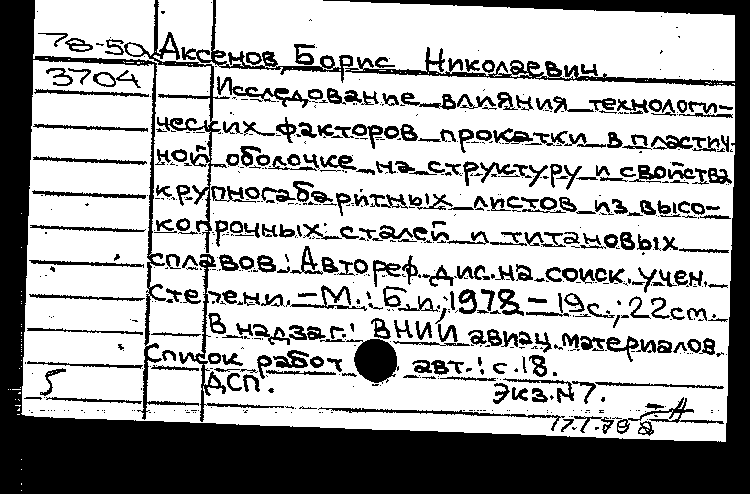 78-50 Аксенов, Борис Николаевич.
3704 Исследование влияния технологи-
ческих факторов прокатки в пластич-
ной оболочке на структуру и свойства
крупногабаритных листов из высо-
копрочных сталей и титановых
сплавов: Автореф. дис. на соиск. учен.
степени. - М.: Б.и., 1978 - 19с.; 22см.
В надзаг: ВНИИ авиац. материалов.
Список работ авт.: с.18.
5 ДСП. Экз. N7.